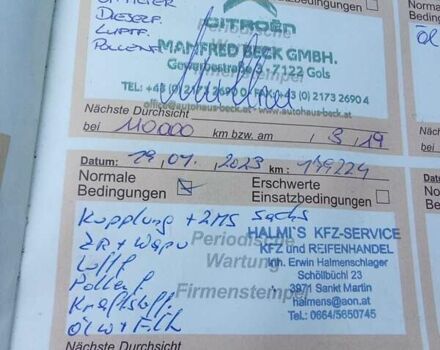 Dieself.
Luftf.
Pollenf.
CITROËN
MANFRED BECK GMBH.
Gewerbestraße - 7122 Gols
TEL: +43 (0) 2173 2690 0 • FAX: +43 (0) 2173 2690 4
office@autohaus-beck.at www.autohaus-beck.at
Periodische
Firmenstempel
Einsatzbedingungen
Öl
Nächste Durchsicht
bei 110.000 km bzw. am 3/19
Datum: 19,01, 2023 km: 149224
Normale Bedingungen
Erschwerte Einsatzbedingungen
Kupplung + ZMS Sachs
ZR + Wapu
Luftf
Pollenf.
Kraftstoff.
Öl W + Filt
Periodische
Wartung
Firmenstempel
HALMI`S KFZ-SERVICE
KFZ und REIFENHANDEL
Inh. Erwin Halmenschlager
Schöllbüchl 23
3971 Sankt Martin
halmens@aon.at
Tel.: 0664/5650745
Nächste Durchsicht